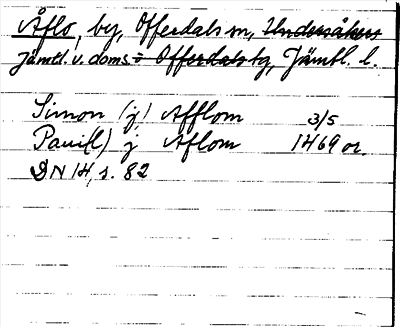 Åflo, by, Offerdals sn, Undersåkers
Jämtl. v. doms. Offerdals tg, Jämtl. l.
Simon (j) Afflom 3/5
Pauil(l) j Aflom 1469 or.
DN 14, s. 82